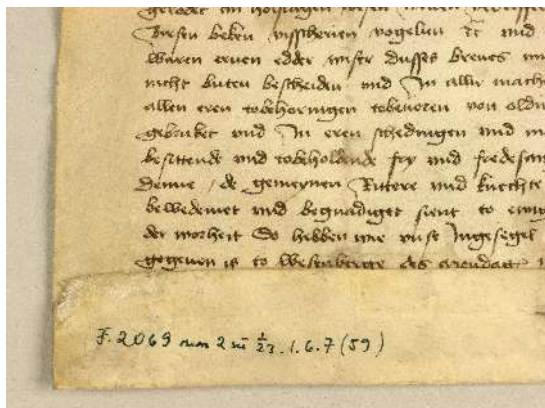 gelodet in
diesen beken visscherien vogelien ꝛc und
waren erven edder unser dusses breves
nicht buten bescheiden und In aller mach
allen eren tobehoringen tobeuoren von oldin
gebruket vnd In eren schedingen und
besittende vnd tobeholdende fry und fredesam
Denne / de gemeynen Rittere und knechte
bewedemet vnd begnadiget sient to ewig
der worheit So hebben wie unse Ingesegel
gegeven is to Wesenberge des
F. 2069 num 2 1/23. 1. 6. 7 (59)